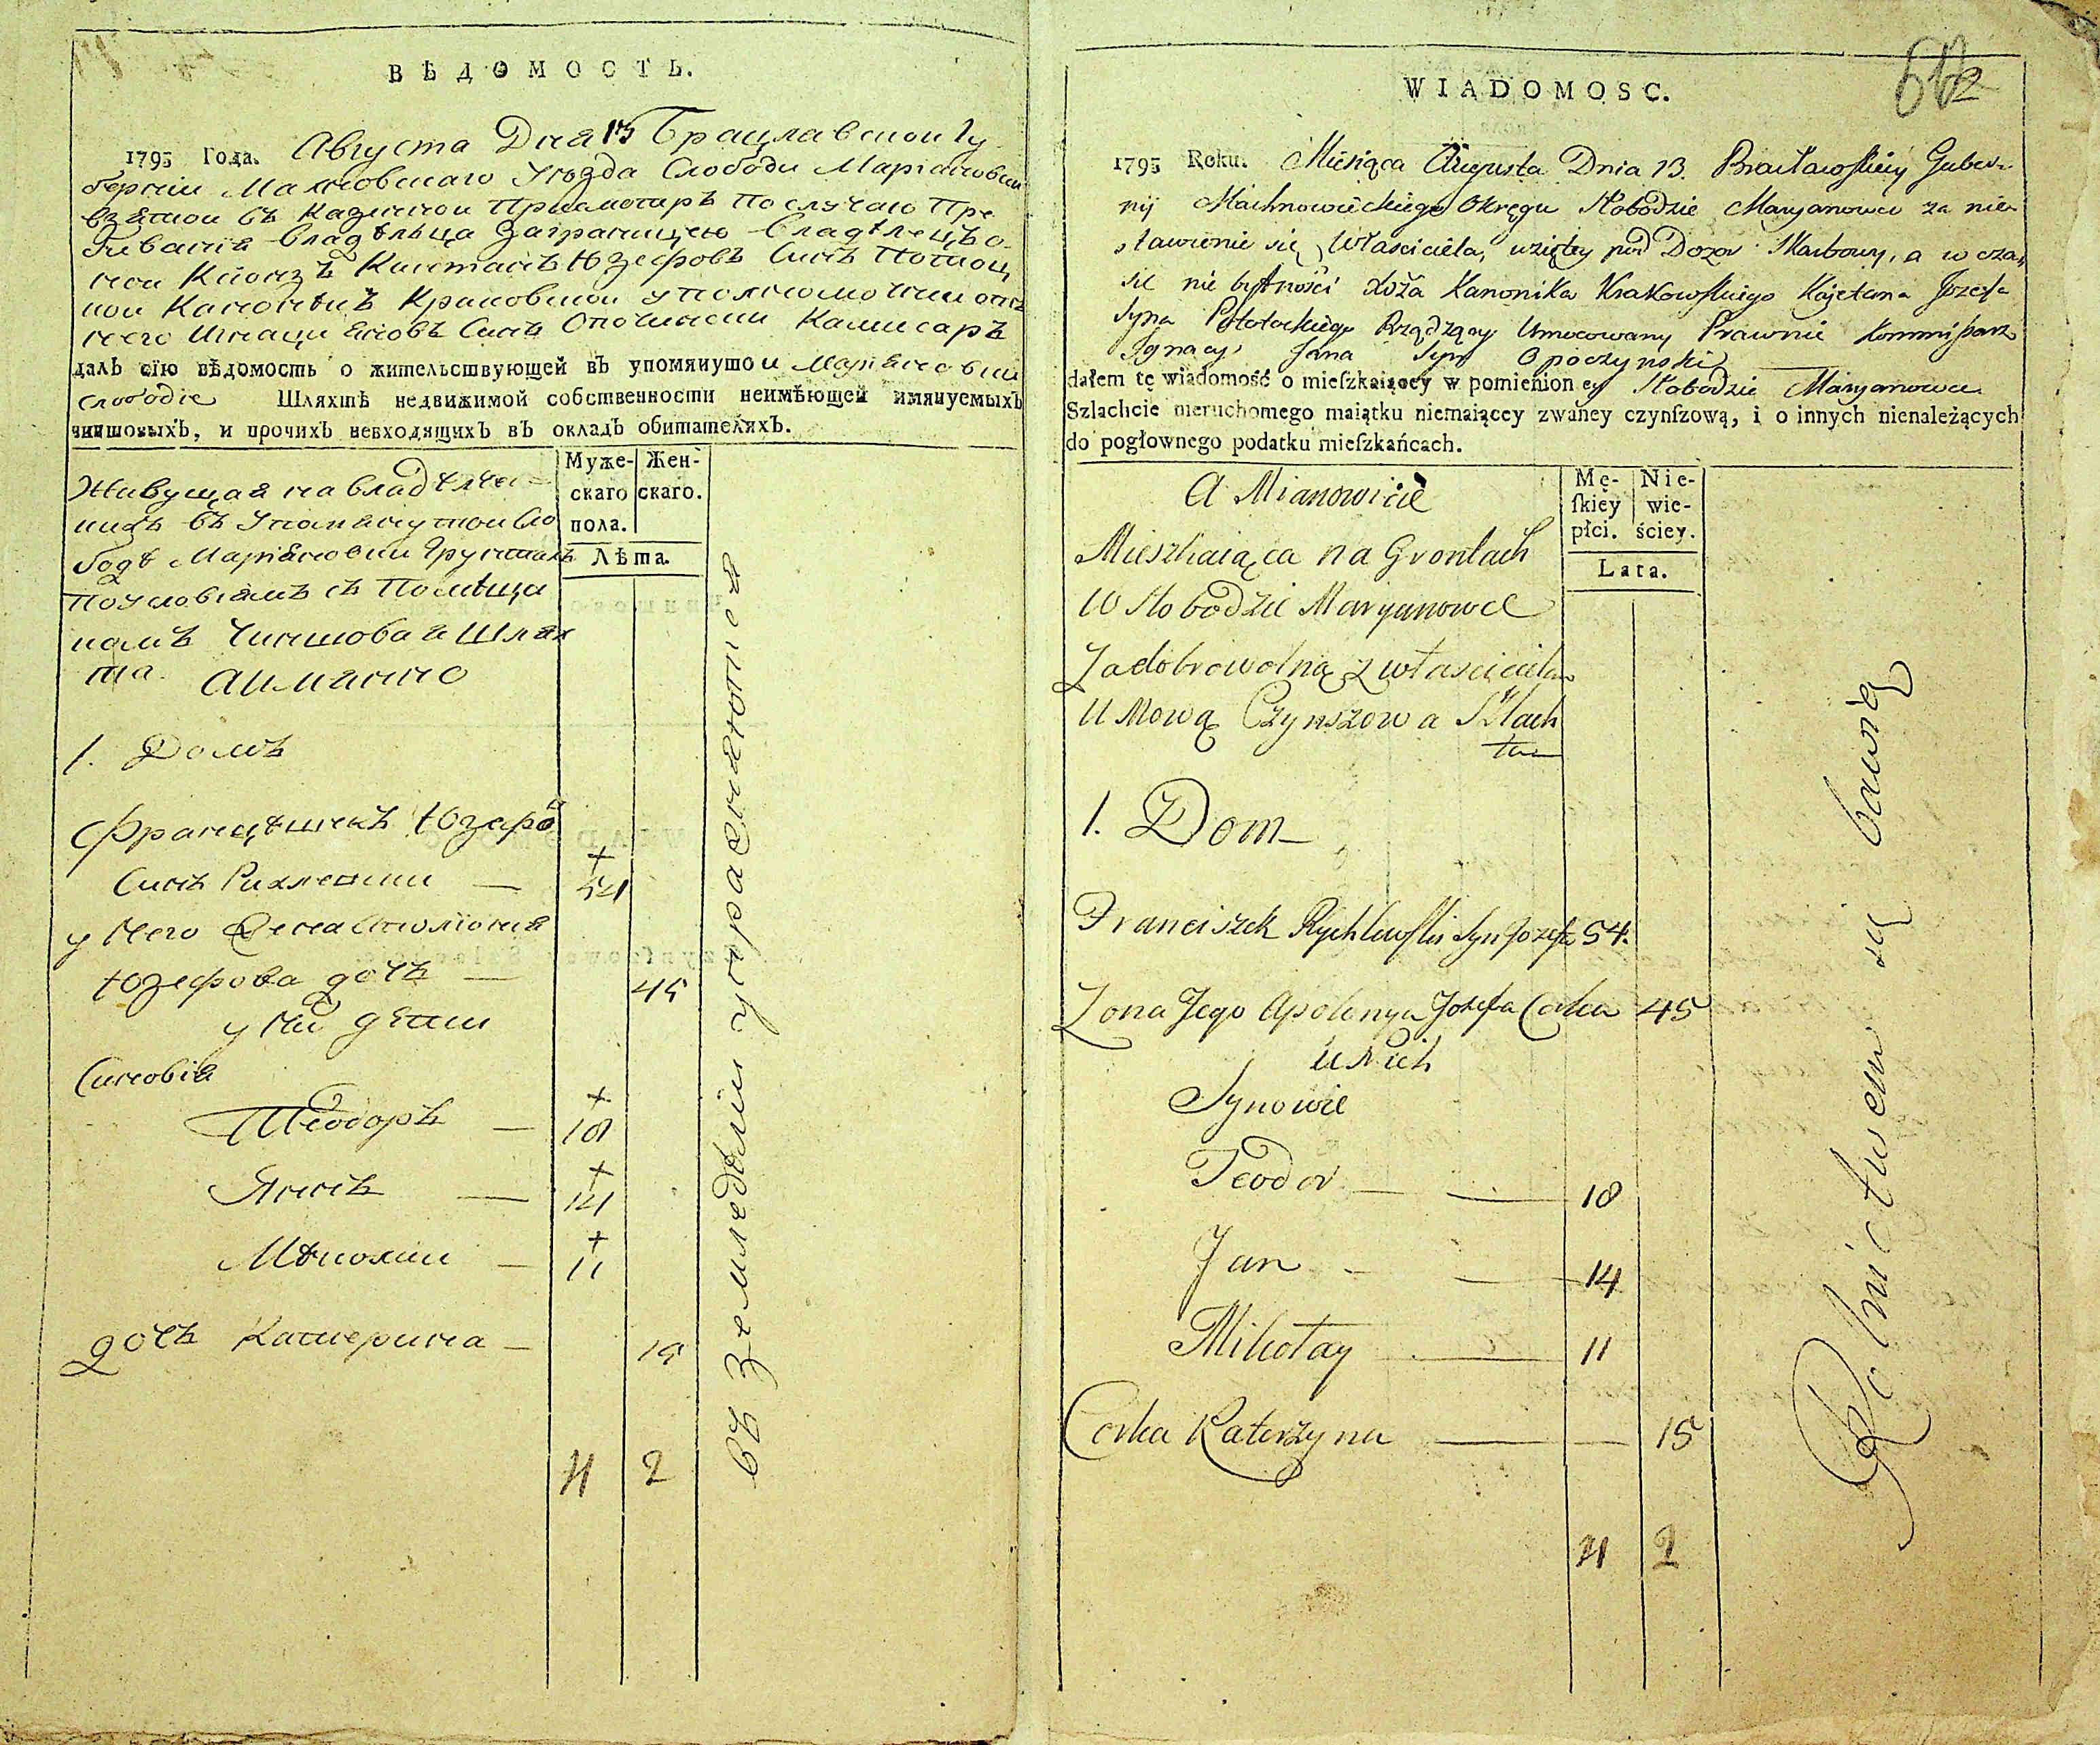 ВѢДОМОСТЬ.
1795 Года. Августа Дня 13 Брацлавской Гу
берніи Махновскаго Уѣзда Слободи Маріановки
взятой въ Казинной Присмотиръ По случаю Пре
бивания Владѣльца Заграницею Владѣлецъ о
ной Ксіондзъ Каетанъ Юзефовъ Синъ Потоц
кой Каноникъ Краковской уполномоченной
него Игнаци Яновъ Синъ Опочински Камисаръ
далъ сїю вѣдомость о жительствующей въ упомянутой Маріановки
слободіе Шляхтѣ недвижимой собственности неимѣющей имянуемыхъ
чиншовыхъ, и прочихъ невходящихъ въ окладъ обитателяхъ.
Муже- Жен-
скаго скаго.
пола.
Лѣта.
Живущая на владѣлче
кихъ въ Упомянутой Сло
бодѣ Маріановки Грунтахъ
По условіямъ съ Помѣщи
комъ Чиншовая Шлях
та. аимянно
1. Домъ
Францѣшекъ Юзефо
Синъ Рихлевски — 54
у Него Жена Аполіония
Юзефова дочь — 45
у Них дѣти
Синовія
Теодоръ — 18
Янъ — 14
Мѣколаи — 11
дочь Катерина — 15
4 2
въ земледѣліи упражняются
WIADOMOSC.
662
1795 Roku. Miesiąca Augusta Dnia 13. Bracławskiey Guber-
nij Machnowieckiego Okręgu Słobodzie Maryanowce za nie
stawienie się Właściciela, wziętey pod Dozor Skarbowy, a w cza
sie nie bytności Xiżą Kanonika Krakowskiego Kajetana Jozefa
Syna Potockiego Rządzący Umocowany Prawnie Kommissarz
Ignacy Jana Syn Opoczynski
dałem tę wiadomość o mieſzkaiącey w pomienioney Słobodzie Maryanowce
Szlachcie nieruchomego maiątku niemaiącey zwaney czynſzową, i o innych nienależących
do pogłownego podatku mieſzkańcach.
Mę- Nie-
ſkiey wie-
płci. ściey.
Lata.
A Mianowicie
Mieszkaiąca na Grontach
W Słobodzie Maryanowce
Za dobrowolną z właścicielem
Umową Czynszowa Szlach
ta
1. Dom
Franciszek Rychlewski Syn Jozefa 54.
Zona Jego Apolonya Jozefa Corka 45
u Nich
Synowie
Teodor — 18
Jan — 14
Mikołay — 11
Corka Katerzyna — 15
4 2
Rolnictwem się bawią